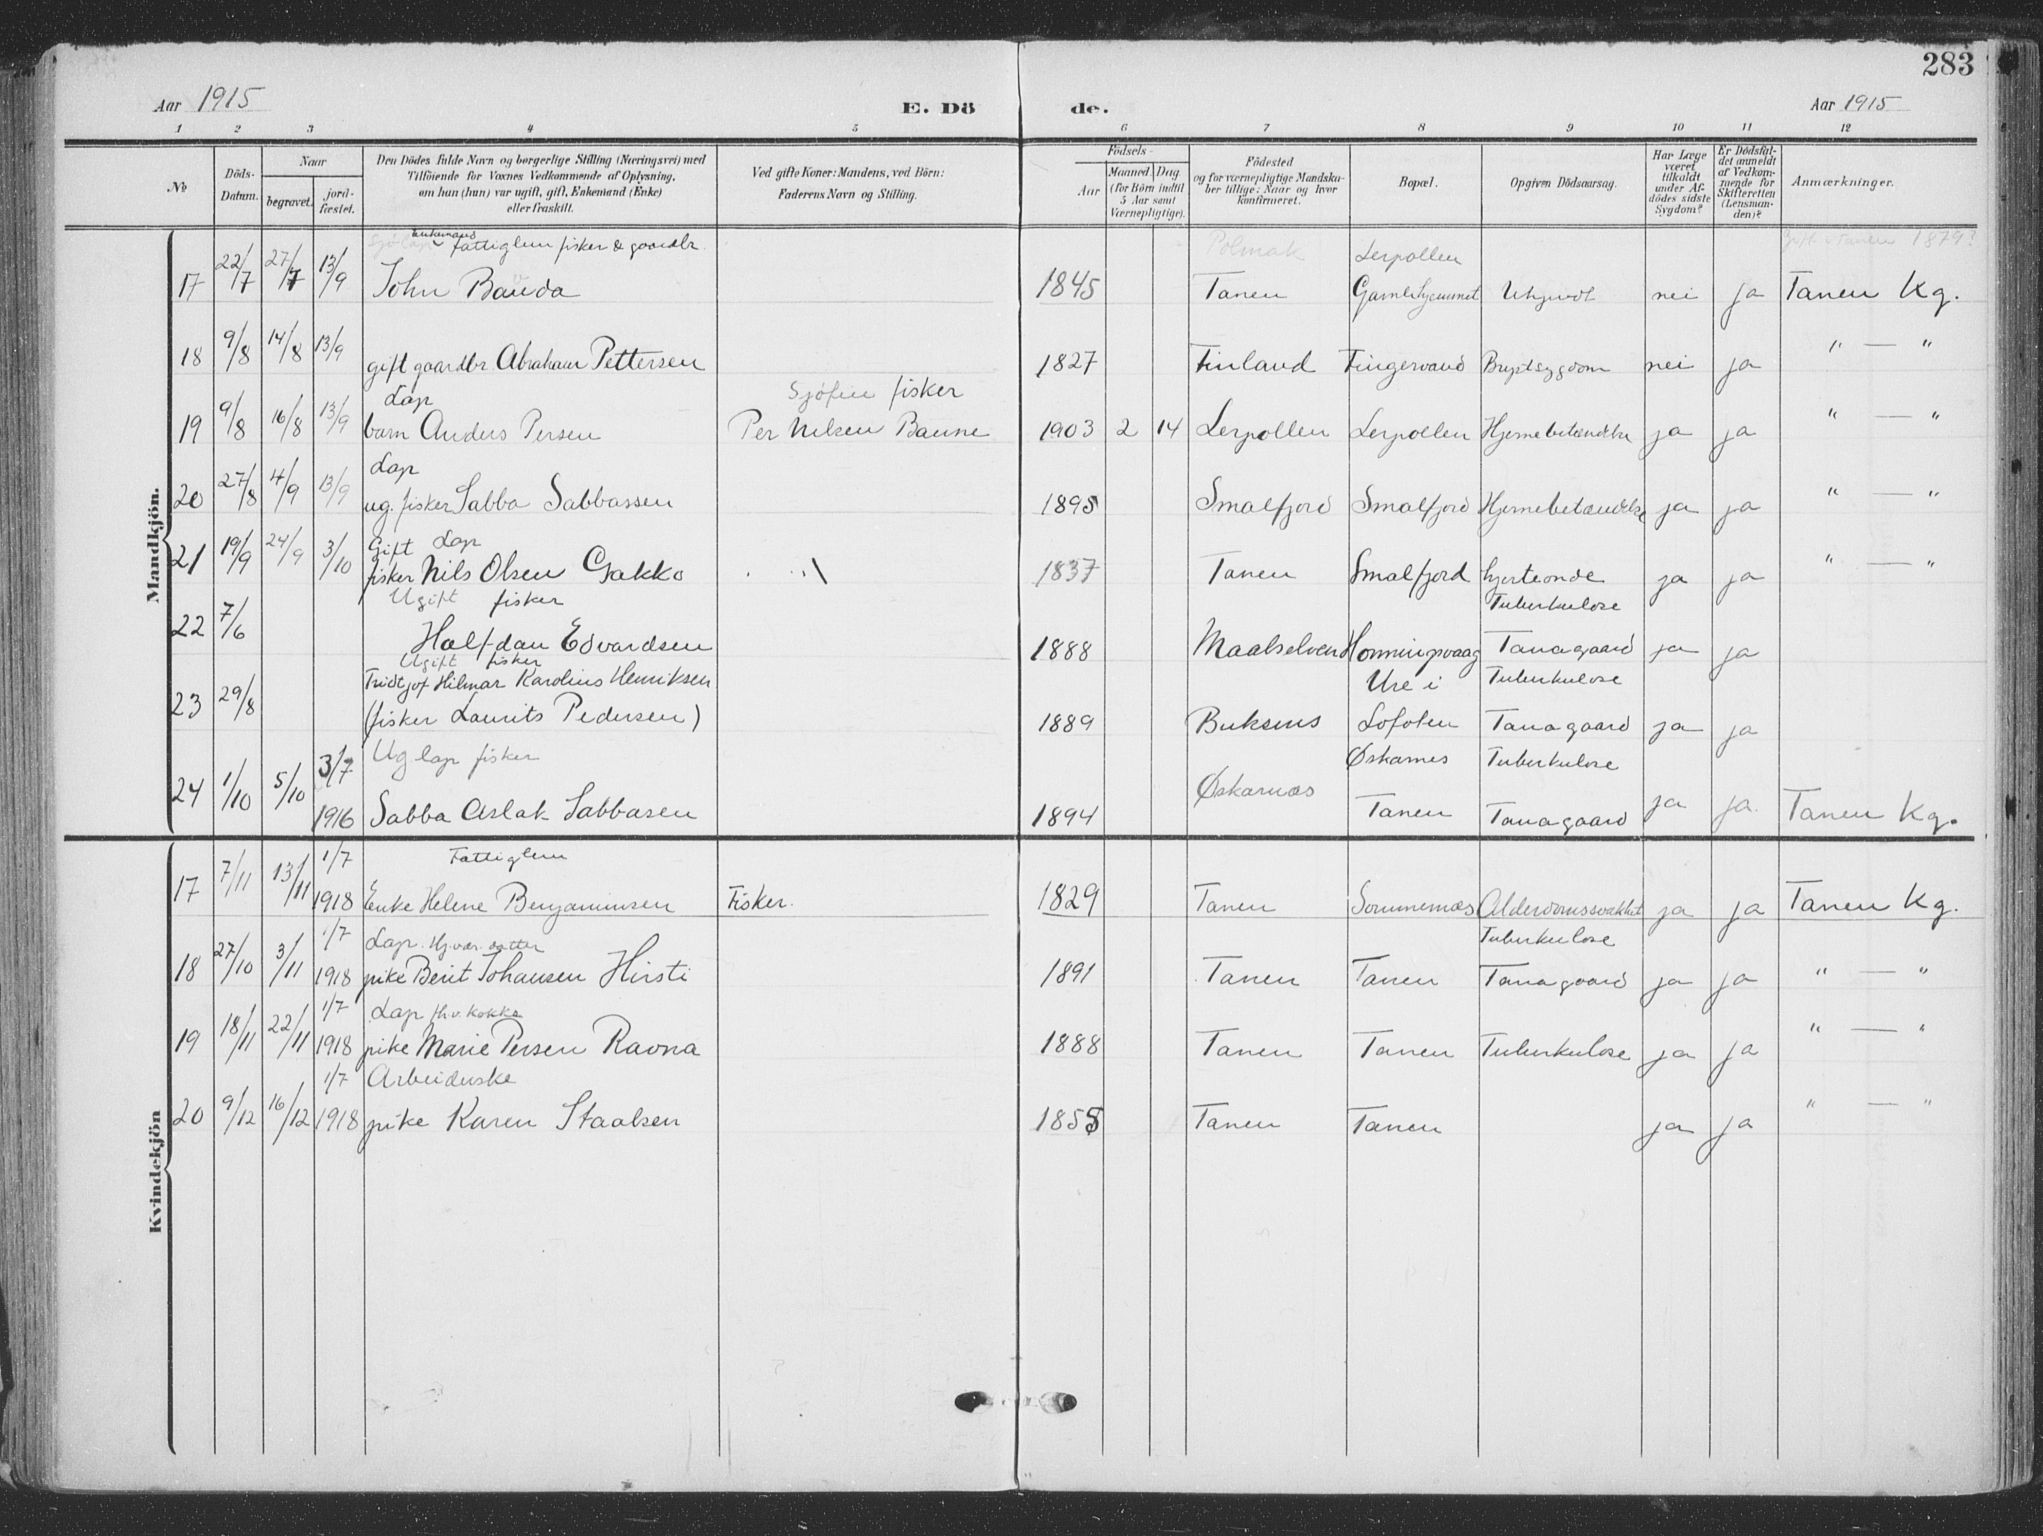 283
Aar 1915 E. Dö de. Aar 1915
1 2 3 4 5 6 7 8 9 10 11 12
No
Döds-Datum.
Naar
begravet.
jord-fæstet.
Den Dödes fulde Navn og borgerlige Stilling (Næringsvei) med
Tilföiende for Voxnes Vedkommende af Oplysning,
om han (hun) var ugift, gift, Enkemand (Enke)
eller fraskilt.
Ved gifte Koner: Mandens, ved Börn:
Faderens Navn og Stilling.
Födsels-
Aar
Maaned. Dag
(for Börn indtil
5 Aar samt
Værnepligtige).
Födested
og for værnepligtige Mandska-
ber tillige: Naar og hvor
konfirmeret.
Bopæl.
Opgiven Dödsaarsag.
Har Læge
været
tilkaldt
under Af-
dödes sidste
Sygdom?
Er Dödsfal-
det anmeldt
af Vedkom-
mende for
Skifteretten
(Lensman-
den)?
Anmærkninger.
Mandkjön.
Enkemand
fattiglem fisker & gaardbr. Polmak Lerpollen 1879?
17 22/7 27/7 13/9 John Bauda 1845 Tanen Gamlehjemmet Ukjendt nei ja Tanen Kg.
18 9/8 14/8 13/9 gift gaardbr Abraham Pettersen 1827 Finland Fingervand Brystsygdom nei ja " — "
Lap Sjøfin fisker
19 9/8 16/8 13/9 barn Anders Persen Per Nilsen Banne 1903 2 14 Lerpollen Lerpollen Hjernebetændelse ja ja " — "
Lap
20 27/8 4/9 13/9 ug. fisker Sabba Sabbassen 1895 Smalfjord Smalfjord Hjernebetændelse ja ja " — "
Gift Lap
21 19/9 24/9 3/10 fisker Nils Olsen Gakko 1837 Tanen Smalfjord hjerteonde ja ja " — "
Ugift fisker Tuberkulose
22 7/6 Halfdan Edvardsen 1888 Maalselven Honningsvaag Tanagaard ja ja
Ugift fisker
Fridtjof Hilmar Karolius Henriksen Ure i Tuberkulose
23 29/8 (fisker Laurits Pedersen) 1889 Buksnes Lofoten Tanagaard ja ja
3/7 Ug lap fisker Øskarnes Tuberkulose
24 1/10 5/10 1916 Sabba Aslak Sabbasen 1894 Øskarnæs Tanen Tanagaard ja ja. Tanen Kg.
Kvindekjön
1/7 Fattiglem
17 7/11 13/11 1918 Enke Helene Benjaminsen Fisker. 1829 Tanen Sommernæs Alderdomssvakhet ja ja Tanen Kg.
1/7 Lap. Hj.vær. datter Tuberkulose
18 27/10 3/11 1918 pike Berit Johansen Hirsti 1891 Tanen Tanen Tanagaard ja ja " — "
1/7 Lap fh.v. kokke
19 18/11 22/11 1918 pike Marie Persen Ravna 1888 Tanen Tanen Tuberkulose ja ja " — "
1/7 Arbeiderske
20 9/12 16/12 1918 pike Karen Staalsen 1855 Tanen Tanen ja ja " — "